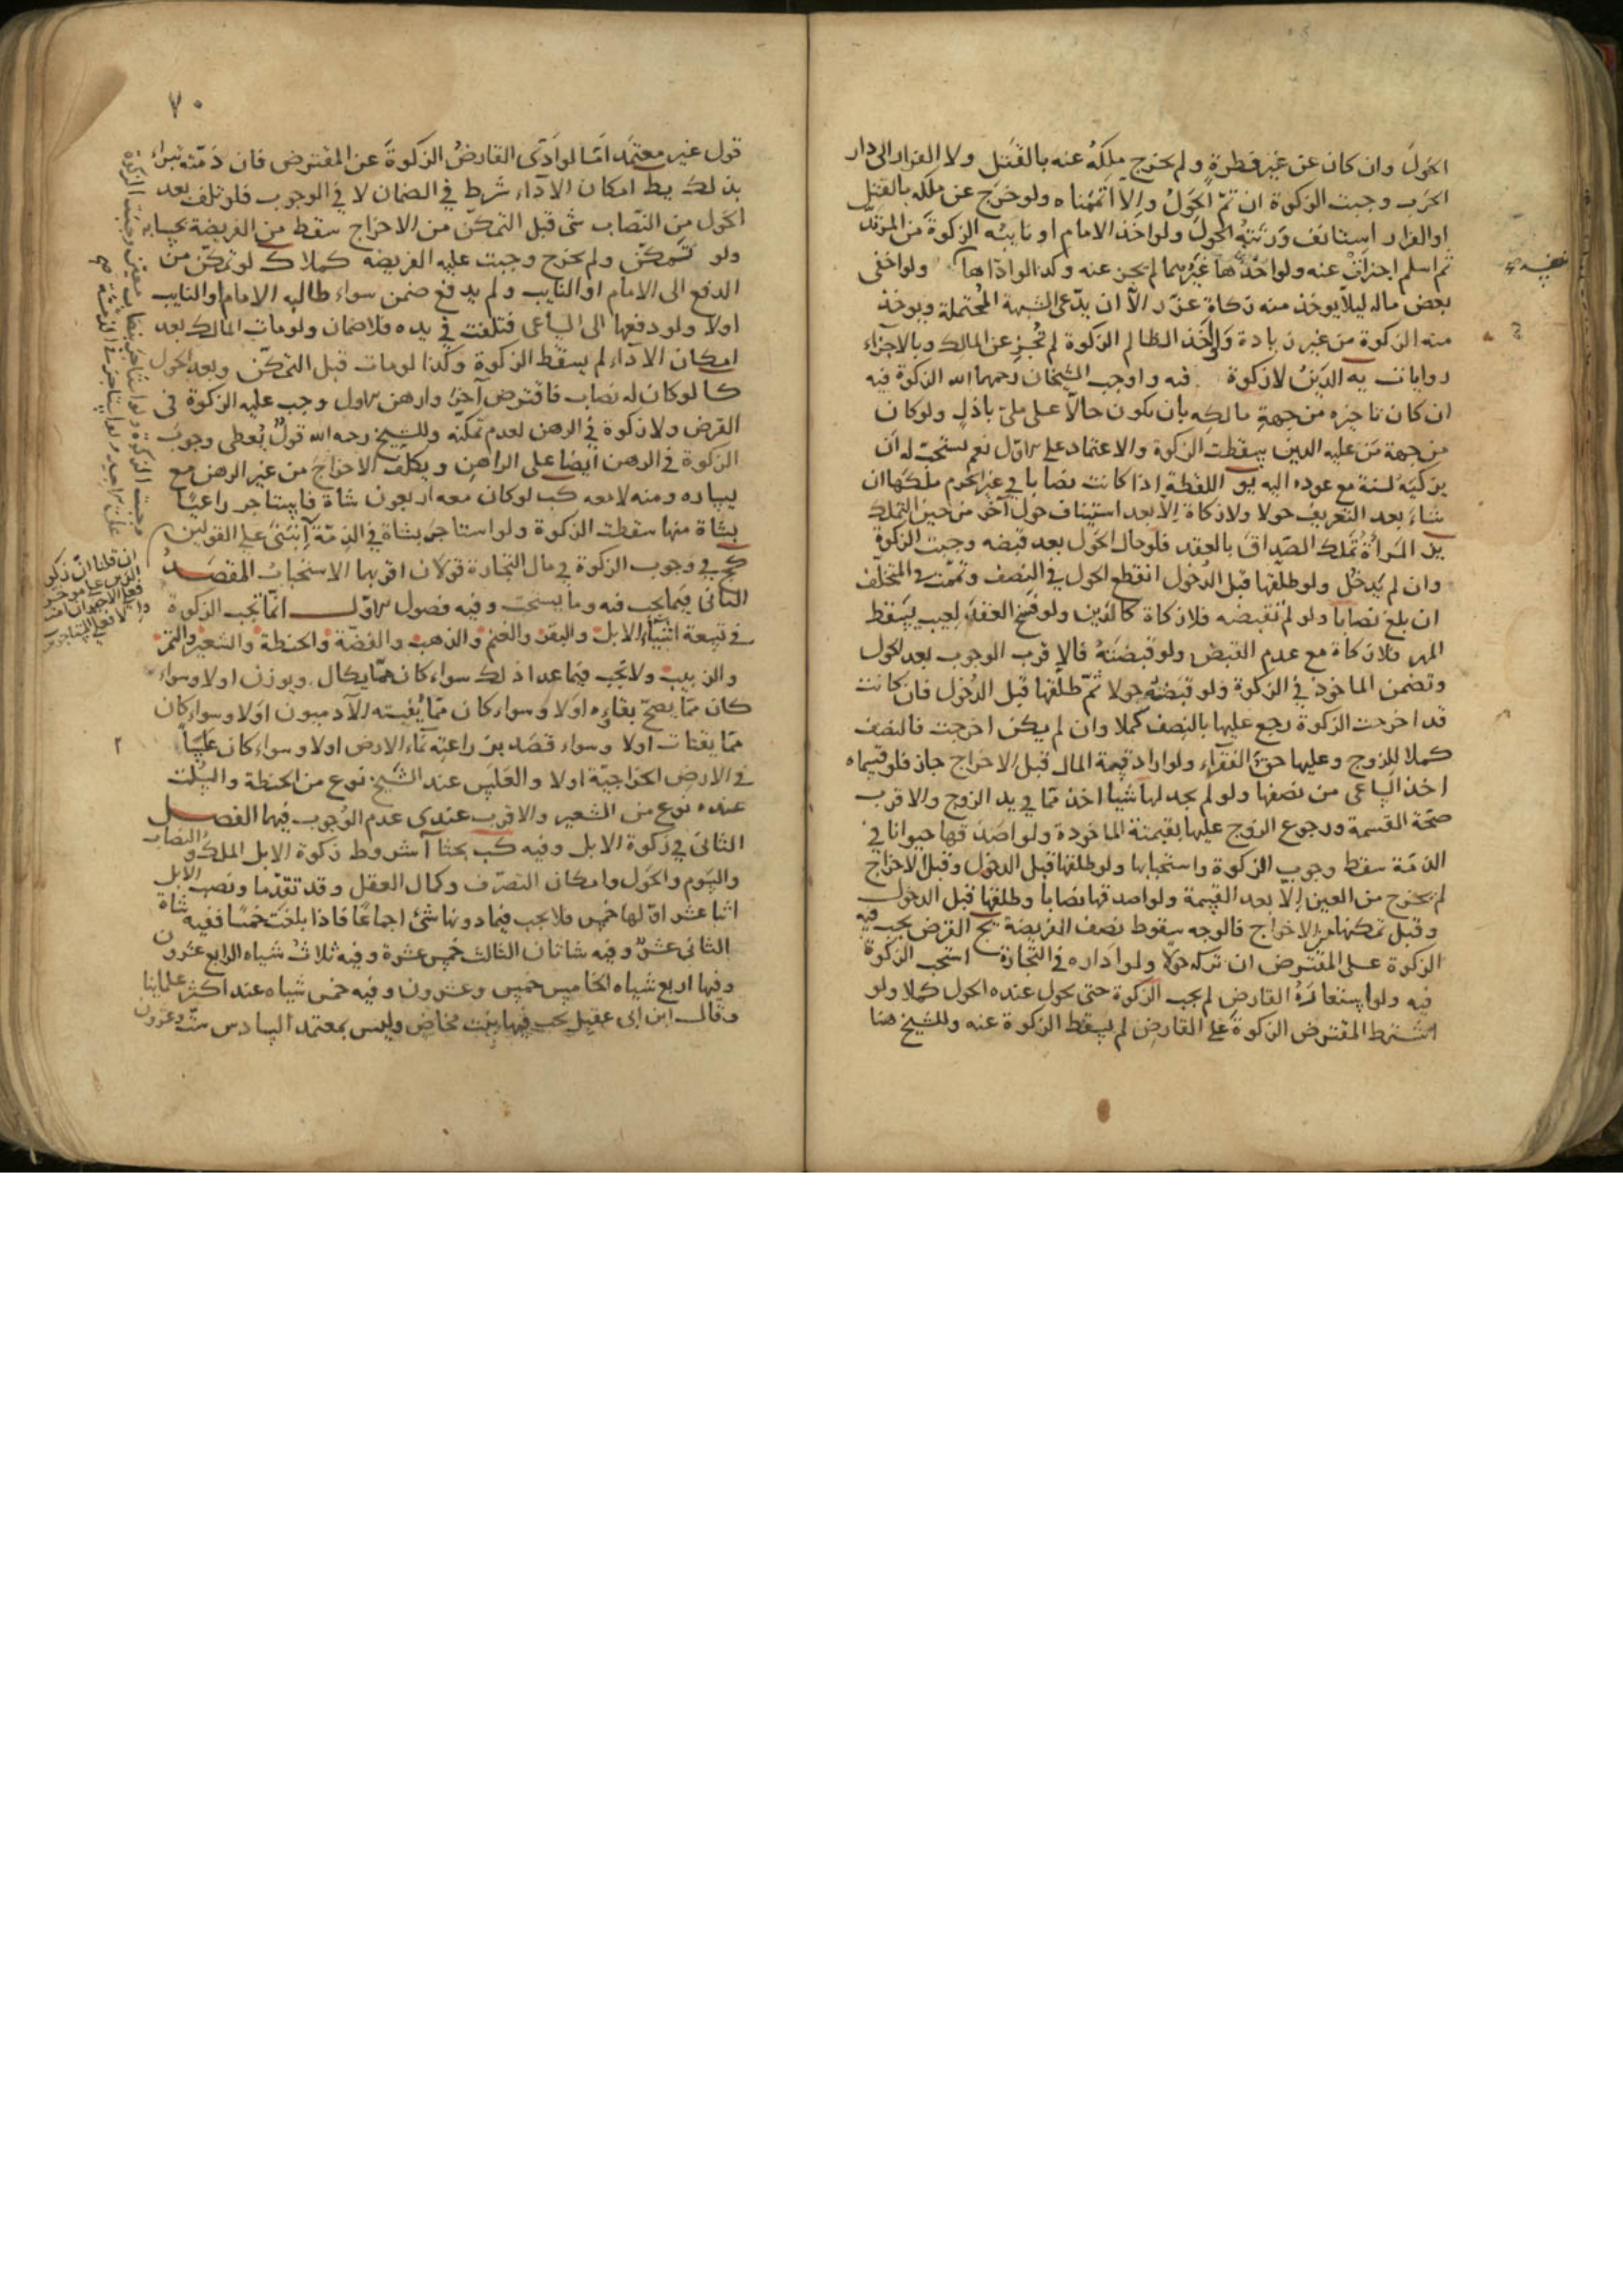 الحول وان كان عن غير فطرة ولم يخرج ملكه عنه بالقتل ولا الفرار الى دار
الحرب وجبت الزكوة ان تم الحول والا اتممناه ولو خرج عن ملكه بالقتل
او الفرار استانف ورثته الحول ولو اخذ الامام او نايبه الزكوة من المرتد
ثم اسلم اجزات عنه ولو اخذها غيرهما لم يجز عنه وكذا لو اداها ولو اخفى
بعض ماله ليلا يوخذ منه زكاة عزر الا ان يدعى الشبهة المحتملة ويوخذ
منه الزكوة من غير زيادة ولو اخذ الظالم الزكوة لم تجز عن المالك وبالاجزاء
روايات يه الدين لا زكوة فيه واوجب الشيخان رحمهما الله الزكوة فيه
ان كان تاخيره من جهة مالكه بان يكون حالا على ملئ باذل ولو كان
من جهة من عليه الدين سقطت الزكوة والاعتماد على الاول نعم يستحب له ان
يزكيه لسنة مع عوده اليه يو اللقطة اذا كانت نصابا في غير الحرم ملكها ان
شاء بعد التعريف حولا ولا زكاة الا بعد استيناف حول آخر من حين التملك
يز المراة تملك الصداق بالعقد فلو حال الحول بعد قبضه وجبت الزكوة
وان لم يدخل ولو طلقها قبل الدخول انقطع الحول في النصف وتممت في المتخلف
ان بلغ نصابا ولو لم تقبضه فلا زكاة كالدين ولو فسخ العقد لعيب يسقط
المهر فلا زكاة مع عدم القبض ولو قبضته فالاقرب الوجوب بعد الحول
وتضمن الماخوذ في الزكوة ولو قبضته حولا ثم طلقها قبل الدخول فان كانت
قد اخرجت الزكوة رجع عليها بالنصف كملا وان لم يكن اخرجت فالنصف
كملا للزوج وعليها حق الفقراء ولو اراد قيمة المال قبل الاخراج جاز فلو قسماه
اخذ الساعى من نصفها ولو لم يجد لها شيا اخذ مما في يد الزوج والاقرب
صحة القسمة ورجوع الزوج عليها بقيمة الماخوذة ولو اصدقها حيوانا في
الذمة سقط وجوب الزكوة واستحبابها ولو طلقها قبل الدخول وقبل الاخراج
لم يخرج من العين الا بعد القسمة ولو اصدقها نصابا وطلقها قبل الدخول
وقبل تمكنها من الاخراج فالوجه سقوط نصف الفريضة يح القرض يجب فيه
الزكوة على المقترض ان تركه حولا ولو اداره في التجارة استحب الزكوة
فيه ولو استعاده القارض لم يجب الزكوة حتى يحول عنده الحول كملا ولو
اشترط المقترض الزكوة على القارض لم يسقط الزكوة عنه وللشيخ هنا
٧٠
قول غير معتمد اما لو ادى القارض الزكوة عن المقترض فان ذمته تبراء
بذلك يط امكان الاداء شرط في الضمان لا في الوجوب فلو تلف بعد
الحول من النصاب شئ قبل التمكن من الاخراج سقط من الفريضة بحسابه
ولو تمكن ولم يخرج وجبت عليه الفريضة كملا ك لو تمكن من
الدفع الى الامام او النايب ولم يدفع ضمن سواء طالبه الامام او النايب
اولا ولو دفعها الى الساعى فتلفت في يده فلا ضمان ولو مات المالك بعد
امكان الاداء لم يسقط الزكوة وكذا لو مات قبل التمكن وبعد الحول
كا لو كان له نصاب فاقترض آخر وارهن الاول وجب عليه الزكوة في
القرض ولا زكوة في الرهن لعدم تمكنه وللشيخ رحمه الله قول يعطى وجوب
الزكوة في الرهن ايضا على الراهن ويكلف الاخراج من غير الرهن مع
يساره ومنه لا معه كب لو كان معه اربعون شاة فاستاجر راعيا
بشاة منها سقطت الزكوة ولو استاجر بشاة في الذمة ابتنى على القولين
كج في وجوب الزكوة في مال التجارة قولان اقربهما الاستحباب المقصد
الثانى فيما يجب فيه وما يستحب وفيه فصول الاول انما تجب الزكوة
في تسعة اشياء الابل والبقر والغنم والذهب والفضة والحنطة والشعير والتمر
والزبيب ولا تجب فيما عدا ذلك سواء كان مما يكال ويوزن اولا وسواء
كان مما يصح بقاءه اولا وسواء كان مما ينبته الآدميون اولا وسواء كان
مما يقتات اولا وسواء قصد بزراعته نماء الارض اولا وسواء كان
في الارض الخراجية اولا والعلس عند الشيخ نوع من الحنطة والسلت
عنده نوع من الشعير والاقرب عندى عدم الوجوب فيهما الفصل
الثانى في زكوة الابل وفيه كب بحثا آ شروط زكوة الابل الملك والنصاب
والسوم والحول وامكان التصرف وكمال العقل وقد تقدما ونصب الابل
اثنا عشر اولها خمس فلا يجب فيما دونها شئ اجماعا فاذا بلغت خمسا ففيه شاة
الثانى عشر وفيه شاتان الثالث خمس عشرة وفيه ثلاث شياه الرابع عشرون
وفيها اربع شياه الخامس خمس وعشرون وفيه خمس شياه عند اكثر علماينا
وقال ابن ابى عقيل يجب فيها بنت مخاض وليس بمعتمد السادس ست وعشرون